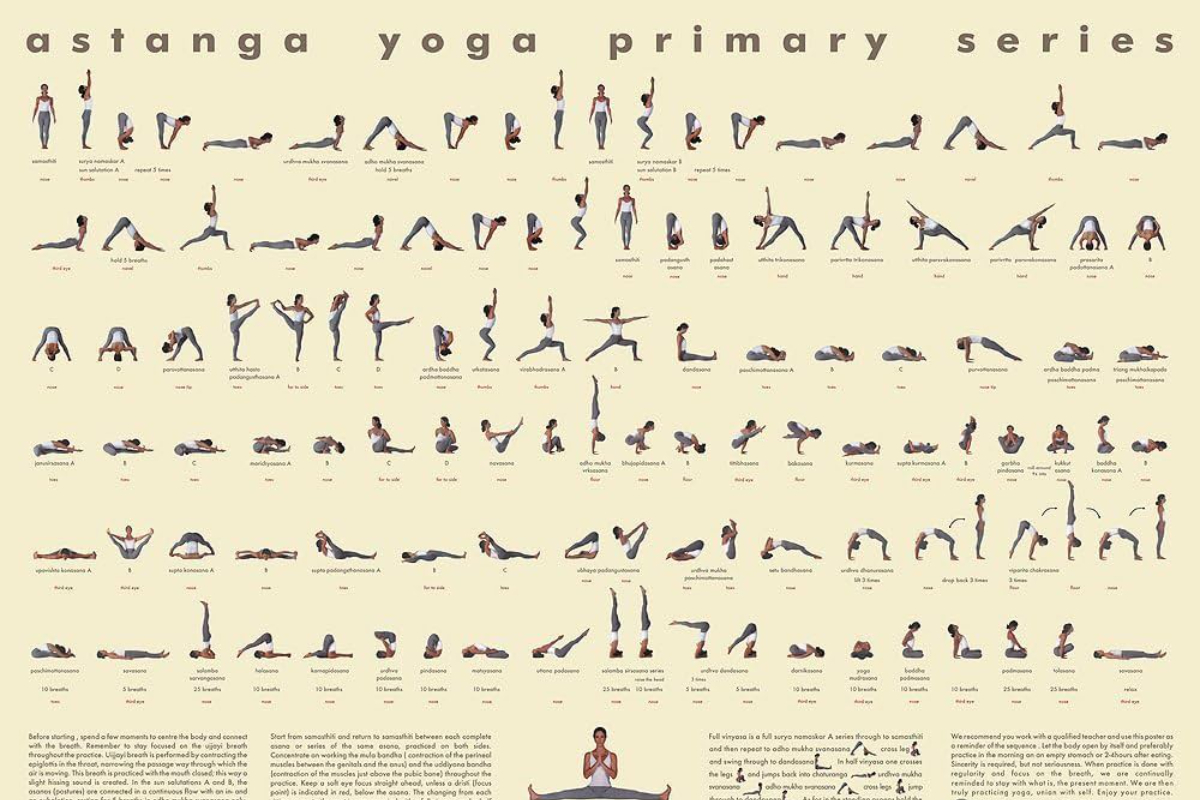 astanga yoga primary series
samasthiti surya namaskar A urdhva mukha svanasana adho mukha svanasana samasthiti surya namaskar B
sun salutation A repeat 5 times hold 5 breaths sun salutation B repeat 5 times
nose thumbs nose nose nose third eye navel nose nose thumbs nose thumbs nose nose nose nose navel thumbs nose
hold 5 breaths samasthiti padangusth padahast utthita trikonasana parivrtta trikonasana utthita parsvakonasana parivrtta parsvakonasana prasarita B
asana asana padottanasana A
third eye navel thumbs nose nose navel nose nose nose nose nose hand hand hand hand nose nose
C D parsvottanasana utthita hasta B C D ardha baddha utkatasana virabhadrasana A B dandasana paschimottanasana A B C purvottanasana ardha baddha padma triang mukhaikapada
padangusthasana A padmottanasana paschimottanasana paschimottanasana
nose nose nose tip toes far to side toes toes nose thumbs thumbs hand nose toes toes toes nose tip toes toes
janusirsasana A B C marichyasana A B C D navasana adho mukha bhujapidasana A B tittibhasana bakasana kurmasana supta kurmasana A B garbha kukkut baddha B
vrksasana pindasana asana konasana A
toes toes toes toes nose far to side far to side toes floor nose floor third eye floor third eye third eye third eye nose nose nose
upavishta konasana A B supta konasana A B supta padangusthasana A B C ubhaya padangustasana urdhva mukha setu bandhasana urdhva dhanurasana viparita chakrasana
paschimottanasana lift 3 times drop back 3 times 3 times
third eye third eye nose toes far to side toes nose nose toes toes nose nose floor floor nose
paschimottanasana savasana salamba halasana karnapidasana urdhva pindasana matsyasana uttana padasana salamba sirsasana series urdhva dandasana yoga baddha padmasana tolasana savasana
sarvangasana padmasana mudrasana padmasana
10 breaths 5 breaths 25 breaths 10 breaths 10 breaths 10 breaths 10 breaths 10 breaths 25 breaths 10 breaths 5 breaths 5 breaths 10 breaths 10 breaths 10 breaths 10 breaths 25 breaths 25 breaths relax
Before starting, spend a few moments to centre the body and connect
with the breath. Remember to stay focused on the ujjayi breath
throughout the practice. Uijjayi breath is performed by contracting the
epiglotis in the throat, narrowing the passage way through which the
air is moving. This breath is practiced with the mouth closed; this way a
slight hissing sound is created. In the sun salutations A and B, the
asanas (postures) are connected in a continuous flow with an in- and
Start from samasthiti and return to samasthiti between each complete
asana or series of the same asana, practiced on both sides.
Concentrate on working the mula bandha ( contraction of the perineal
muscles between the genitals and the anus) and the uddiyana bandha
(contraction of the muscles just above the pubic bone) throughout the
practice. Keep a soft eye focus straight ahead, unless a dristi (focus
point) is indicated in red, below the asana. The changing from each
Full vinyasa is a full surya namaskar A series through to samasthiti
and then repeat to adho mukha svanasana cross leg
and swing through to dandasana In half vinyasa one crosses
the legs and jumps back into chaturanga urdhva mukha
svanasana adho mukha svanasana cross legs jump
through to dandasana As for in the standing asanas hold the
We recommend you work with a qualified teacher and use this poster as
a reminder of the sequence. Let the body open by itself and preferably
practice in the morning on an empty stomach or 2-4hours after eating.
Sincerity is required, but not seriousness. When practice is done with
regularity and focus on the breath, we are continually
reminded to stay with what is, the present moment. We are then
truly practicing yoga, union with self. Enjoy your practice.